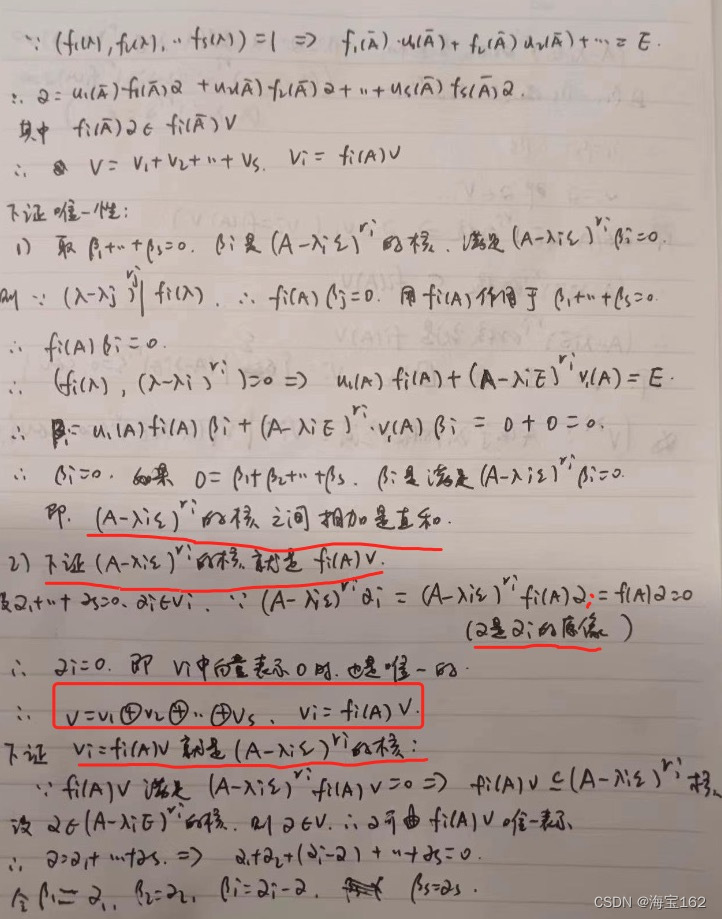 ∵ (f₁(λ), f₂(λ), ‥ fs(λ)) = 1 ⇒ f₁(Ā)·u₁(Ā) + f₂(Ā)u₂(Ā) + ⋯ = E.
∴ α = u₁(Ā)·f₁(Ā)α + u₂(Ā)·f₂(Ā)α + ‥ + us(Ā) fs(Ā)α.
其中 fi(Ā)α ∈ fi(Ā)V
∴ V = V₁ + V₂ + ‥ + Vs. Vi = fi(A)V
下证唯一性:
1) 取 β₁ + ‥ + βs = 0. βi 是 (A-λiε)^ri 的核. 满足 (A-λiε)^ri βi = 0.
则 ∵ (λ-λj)^rj | fi(λ). ∴ fi(A)βj = 0. 用 fi(A) 作用于 β₁ + ‥ + βs = 0.
∴ fi(A)βi = 0.
∴ (fi(λ), (λ-λi)^ri) = 0 ⇒ u₁(A) fi(A) + (A-λiE)^ri v₁(A) = E.
∴ βi = u₁(A) fi(A) βi + (A-λiE)^ri · v₁(A) βi = 0 + 0 = 0.
∴ βi = 0. 如果 0 = β₁ + β₂ + ‥ + βs. βi 是满足 (A-λiε)^ri βi = 0.
即. (A-λiε)^ri 的核 之间 相加是直和.
2) 下证 (A-λiε)^ri 的核. 就是 fi(A)V.
α₁ + ‥ + αs = 0. αi ∈ Vi. ∵ (A-λiε)^ri αi = (A-λiε)^ri fi(A)α = f(A)α = 0
(α是αi的原像)
∴ αi = 0. 即 Vi 中向量表示0时. 也是唯一的.
∴ V = V₁ ⊕ V₂ ⊕ ‥ ⊕ Vs. Vi = fi(A)V.
下证 Vi = fi(A)V 就是 (A-λiε)^ri 的核:
∵ fi(A)V 满足 (A-λiε)^ri fi(A)V = 0 ⇒ fi(A)V ⊆ (A-λiε)^ri 核.
设 α ∈ (A-λiE)^ri 的核. 则 α ∈ V. ∴ α 可由 fi(A)V 唯一表示
∴ α = α₁ + ⋯ + αs. ⇒ α₁ + α₂ + (αi-α) + ‥ + αs = 0.
令 β₁ = α₁, β₂ = α₂, βi = αi-α, βs = αs.
CSDN @海宝162